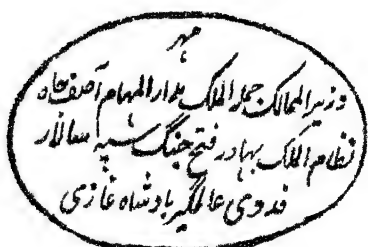 مهر
وزیر الممالک جملة الملک مدار المهام آصف جاه
نظام الملک بهادر فتح جنگ سپه سالار
فدوی عالمگیر بادشاه غازی